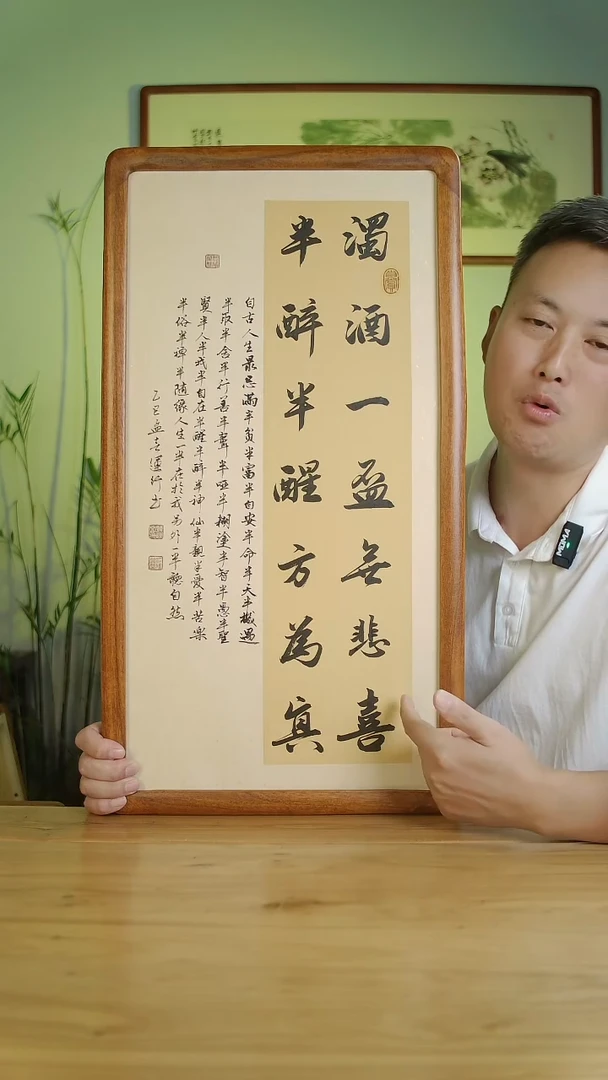 濁酒一盃無悲喜
半醉半醒方為真
自古人生最忌滿半貧半富半自安半命半天半機遇
半取半舍半行善半聾半啞半糊塗半智半愚半聖
賢半人半我半自在半醒半醉半神仙半親半愛半苦樂
半俗半禪半隨緣人生一半在於我另外一半聽自然
乙巳孟
書
MOMA